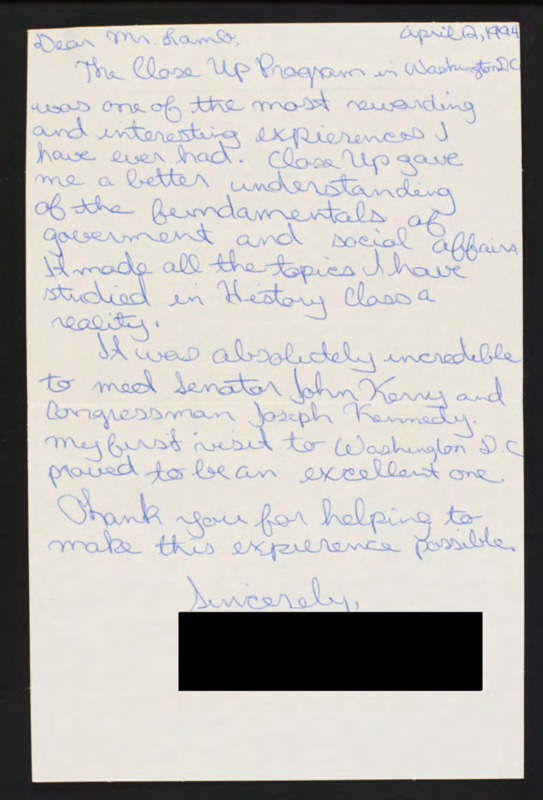 Dear Mr. Lamb,
April 12, 1994
The Close Up Program in Washington D.C.
was one of the most rewarding
and interesting expierences I
have ever had. Close Up gave
me a better understanding
of the fundamentals of
goverment and social affairs.
It made all the topics I have
studied in History Class a
reality.
It was absolutely incredible
to meet Senator John Kerry and
Congressman Joseph Kennedy.
My first visit to Washington D.C
proved to be an excellent one.
Thank you for helping to
make this expierence possible.
Sincerely,